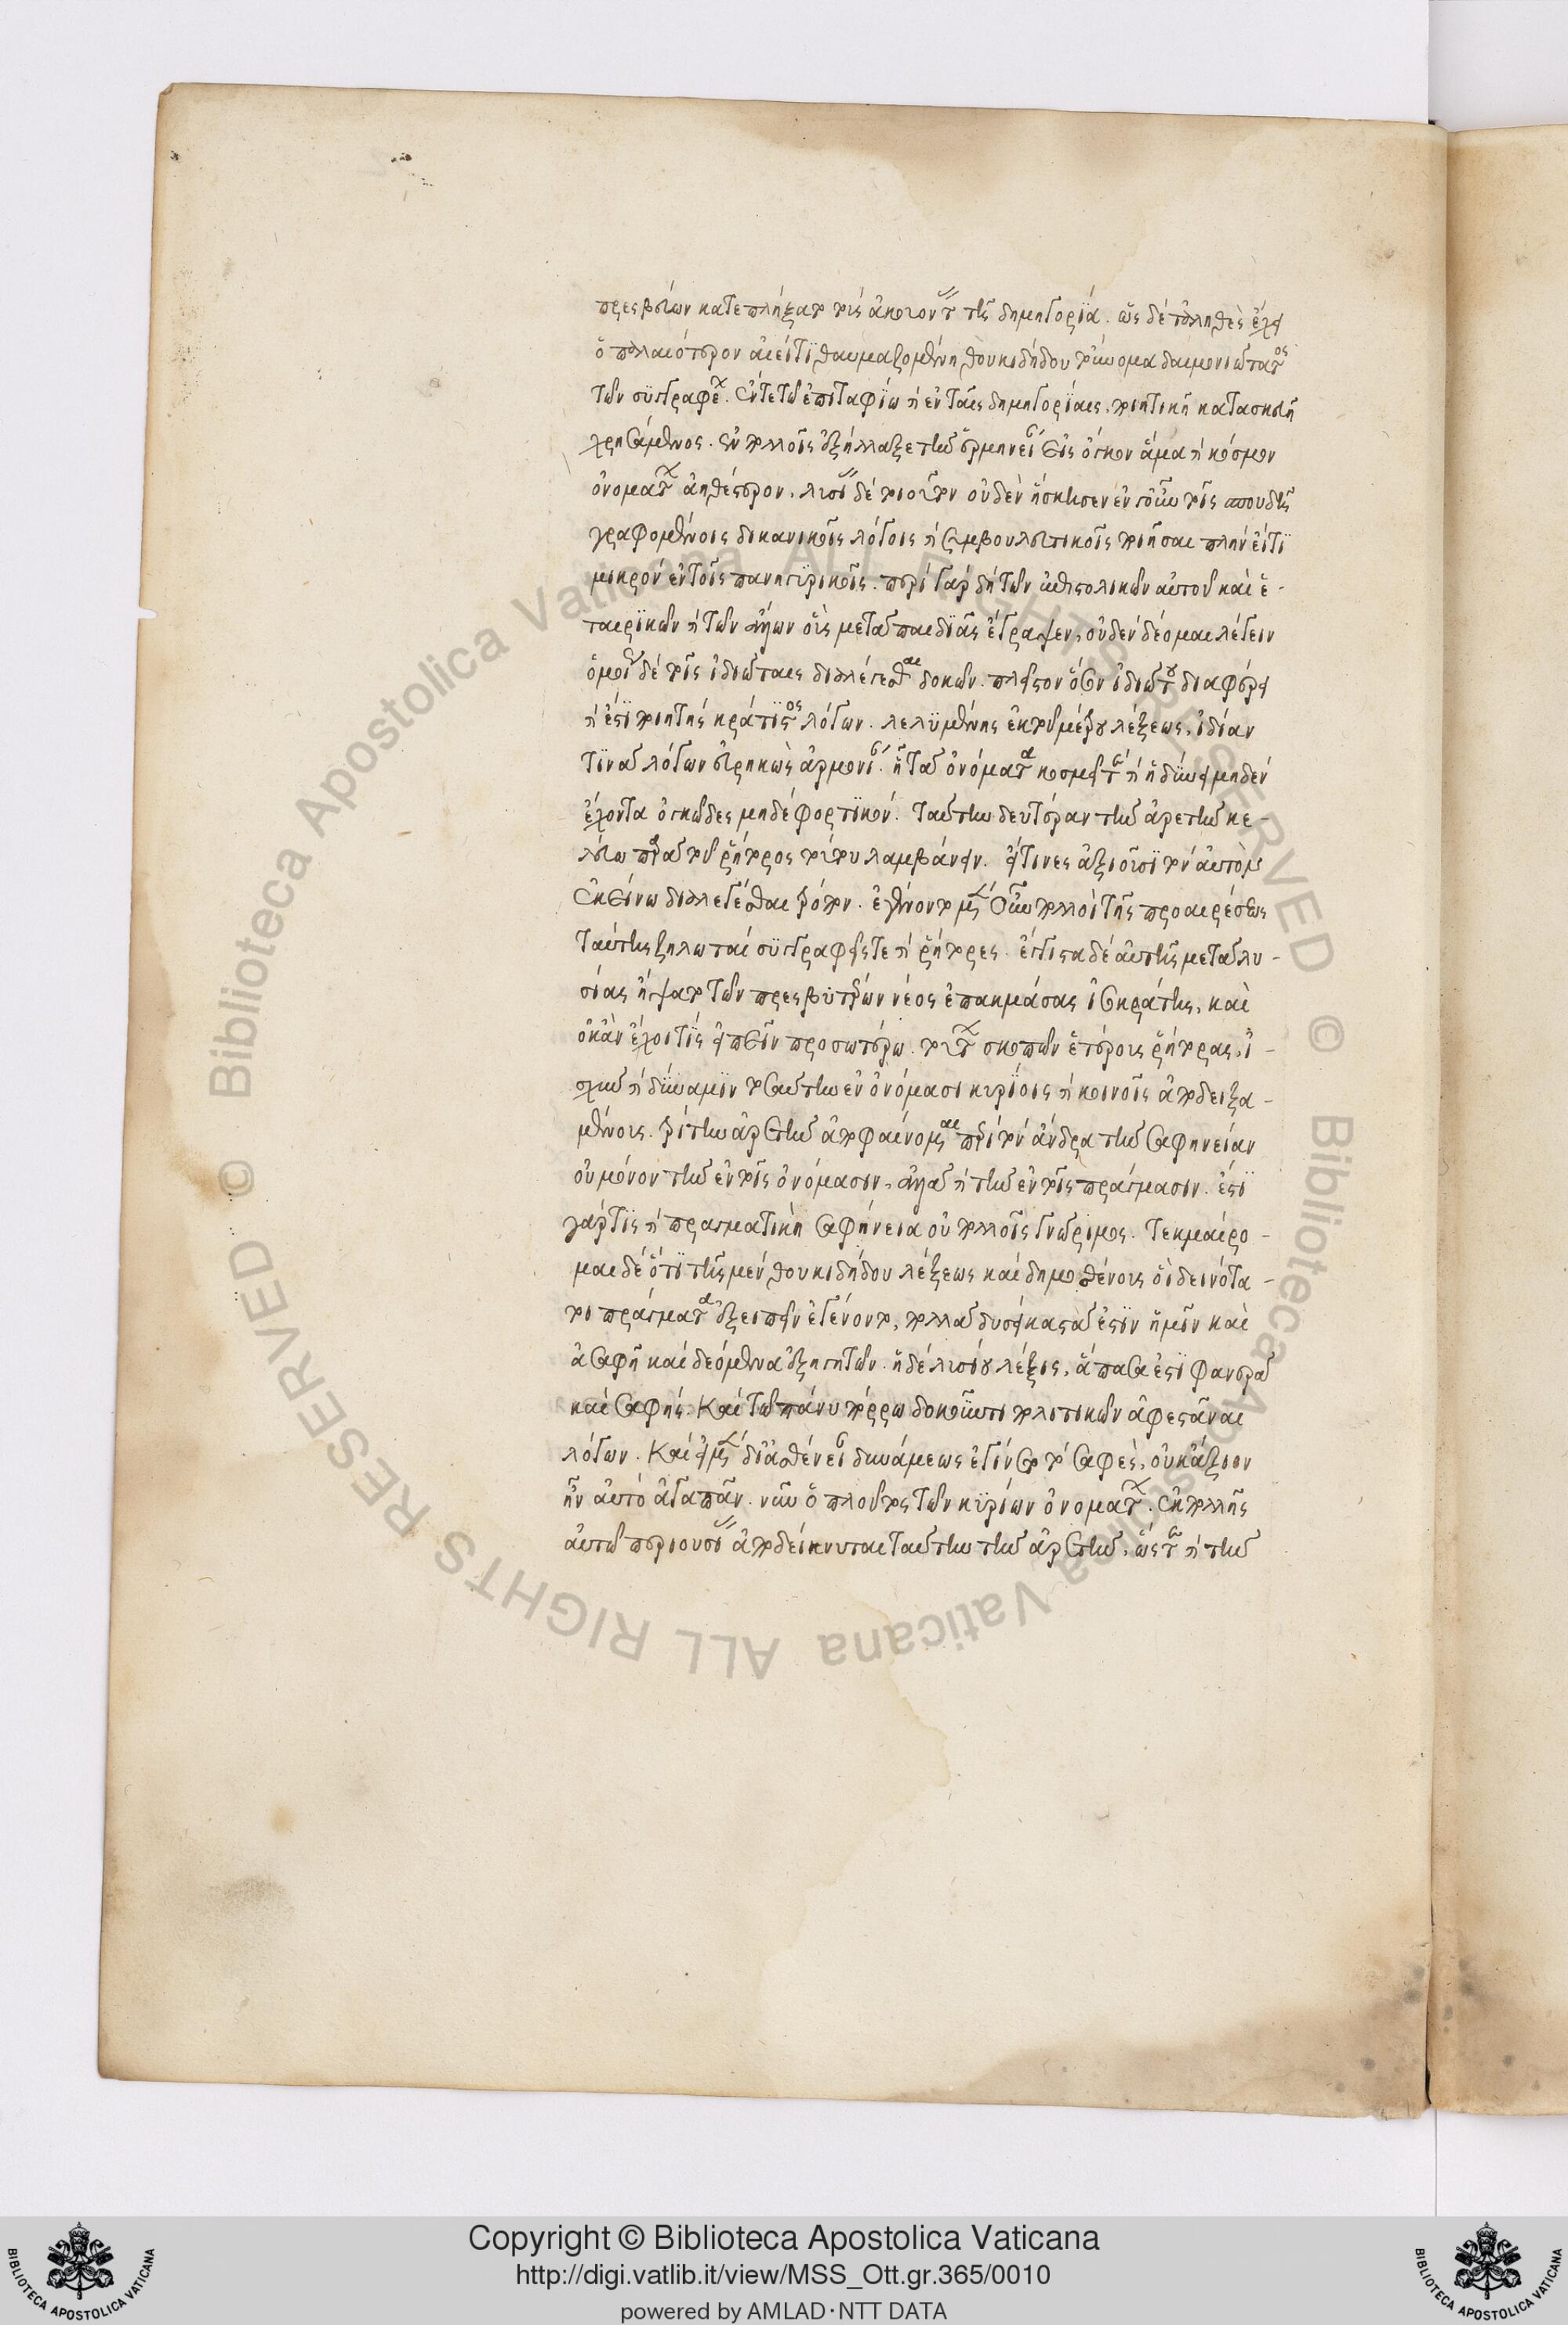 πρεσβεύων κατεπλήξατο τοὺς ἀκούοντας τῆς δημηγορίας. ὡς δὲ τὸ ἀληθὲς ἔχει
ὃ παλαιότερον αἰεί τι θαυμαζομένη θουκιδήδου τοίνυν ὁμα δαιμονιώτατος
τῶν συγγραφέων. ἐν τε τῶ ἐπιταφίω καὶ ἐν ταῖς δημηγορίαις, ποιητικῆ κατασκευῆ
χρησάμενος. ἐν πολλοῖς ἐξήλλαξε τὴν ἑρμηνείαν εἰς ὄγκον ἅμα καὶ κόσμον
ὀνομάτων ἀηθέστερον. λυσίας δὲ τοιοῦτον οὐδὲν ἤσκησεν ἐν γοῦν τοῖς σπουδῆ
γραφομένοις δικανικοῖς λόγοις καὶ συμβουλευτικοῖς ποιῆσαι πλὴν εἴ τι
μικρὸν ἐν τοῖς πανηγυρικοῖς. περὶ γὰρ δὴ τῶν ἐπιστολικῶν αὐτοῦ καὶ ἑ-
ταιρικῶν καὶ τῶν ἄλλων οἷς μετὰ παιδιᾶς ἔγραψεν, οὐδὲν δέομαι λέγειν
ὅμοια δὲ τοῖς ἰδιώταις διαλέγεσθαι δοκῶν. πλεῖστον ὅσον ἰδιώτου διαφέρει
καὶ ἔστι ποιητὴς κράτιστος λόγων. λελυμένης ἐκ τοῦ μέτρου λέξεως, ἰδίαν
τινὰ λόγων εὑρηκὼς ἁρμονίαν. ἧ τὰ ὀνόματα κοσμεῖ τε καὶ ἡδύνει μηδὲν
ἔχοντα ὀγκῶδες μηδὲ φορτικόν. ταύτην δευτέραν τὴν ἀρετὴν κε-
λεύω παρὰ τοῦ ῥήτορος τούτου λαμβάνειν. εἴ τινες ἀξιοῦσι τὸν αὐτὸν
ἐκείνω διαλέγεσθαι τρόπον. ἐγένοντο μὲν οὖν πολλοὶ τῆς προαιρέσεως
ταύτης ζηλωταὶ συγγραφεῖς τε καὶ ῥήτορες. ἔγγιστα δὲ αὐτῆς μετὰ λυ-
σίας ἥψατο τῶν πρεσβυτέρων νέος ἐπακμάσας ἰσοκράτης, καὶ
οὐκ ἂν ἔχοι τις εἰπεῖν προσωτέρω. τούτων σκοπῶν ἑτέρους ῥήτορας, ἰ-
σχὺν καὶ δύναμιν τοσαύτην ἐν ὀνόμασι κυρίοις καὶ κοινοῖς ἀποδειξα-
μένους. τρίτην ἀρετὴν ἀποφαίνομαι περὶ τὸν ἄνδρα τὴν σαφηνείαν
οὐ μόνον τὴν ἐν τοῖς ὀνόμασιν, ἀλλὰ καὶ τὴν ἐν τοῖς πράγμασιν. ἔστι
γάρ τις καὶ πραγματικὴ σαφήνεια οὐ πολλοῖς γνώριμος. τεκμαίρο-
μαι δὲ ὅτι τῆς μὲν θουκιδήδου λέξεως καὶ δημοσθένους οἳ δεινότα-
τοι πράγματα ἐξειπεῖν ἐγένοντο, πολλὰ δυσείκαστά ἐστιν ἡμῖν καὶ
ἀσαφῆ καὶ δεόμενα ἐξηγητῶν. ἡ δὲ λυσίου λέξις, ἅπασα ἐστι φανερὰ
καὶ σαφής. καὶ τῶ πάνυ πόρρω δοκοῦντι πολιτικῶν ἀφεστάναι
λόγων. καὶ εἰ μὲν δι ἀσθένειαν δυνάμεως ἐγίνετο τὸ σαφὲς, οὐκ ἄξιον
ἦν αὐτὸ ἀγαπᾶν. νῦν ὁ πλοῦτος τῶν κυρίων ὀνομάτων. ἐκ πολλῆς
αὐτῶ περιουσίας ἀποδείκνυται ταύτην τὴν ἀρετὴν, ὥστε καὶ τὴν
Copyright © Biblioteca Apostolica Vaticana
http://digi.vatlib.it/view/MSS_Ott.gr.365/0010
powered by AMLAD·NTT DATA